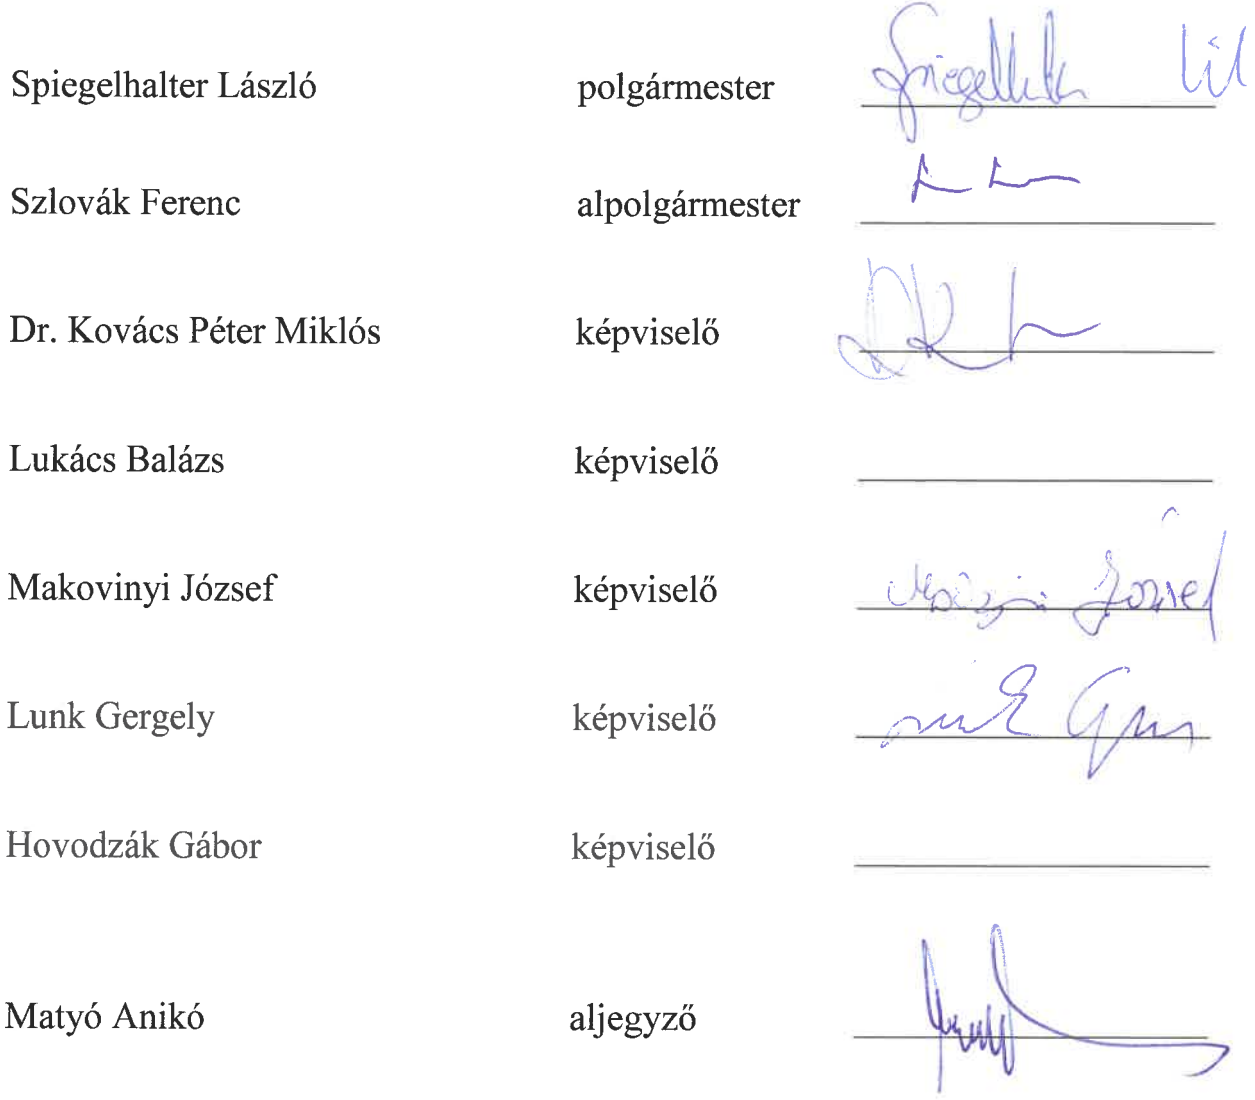 Spiegelhalter László polgármester
Szlovák Ferenc alpolgármester
Dr. Kovács Péter Miklós képviselő
Lukács Balázs képviselő
Makovinyi József képviselő József
Lunk Gergely képviselő
Hovodzák Gábor képviselő
Matyó Anikó aljegyző